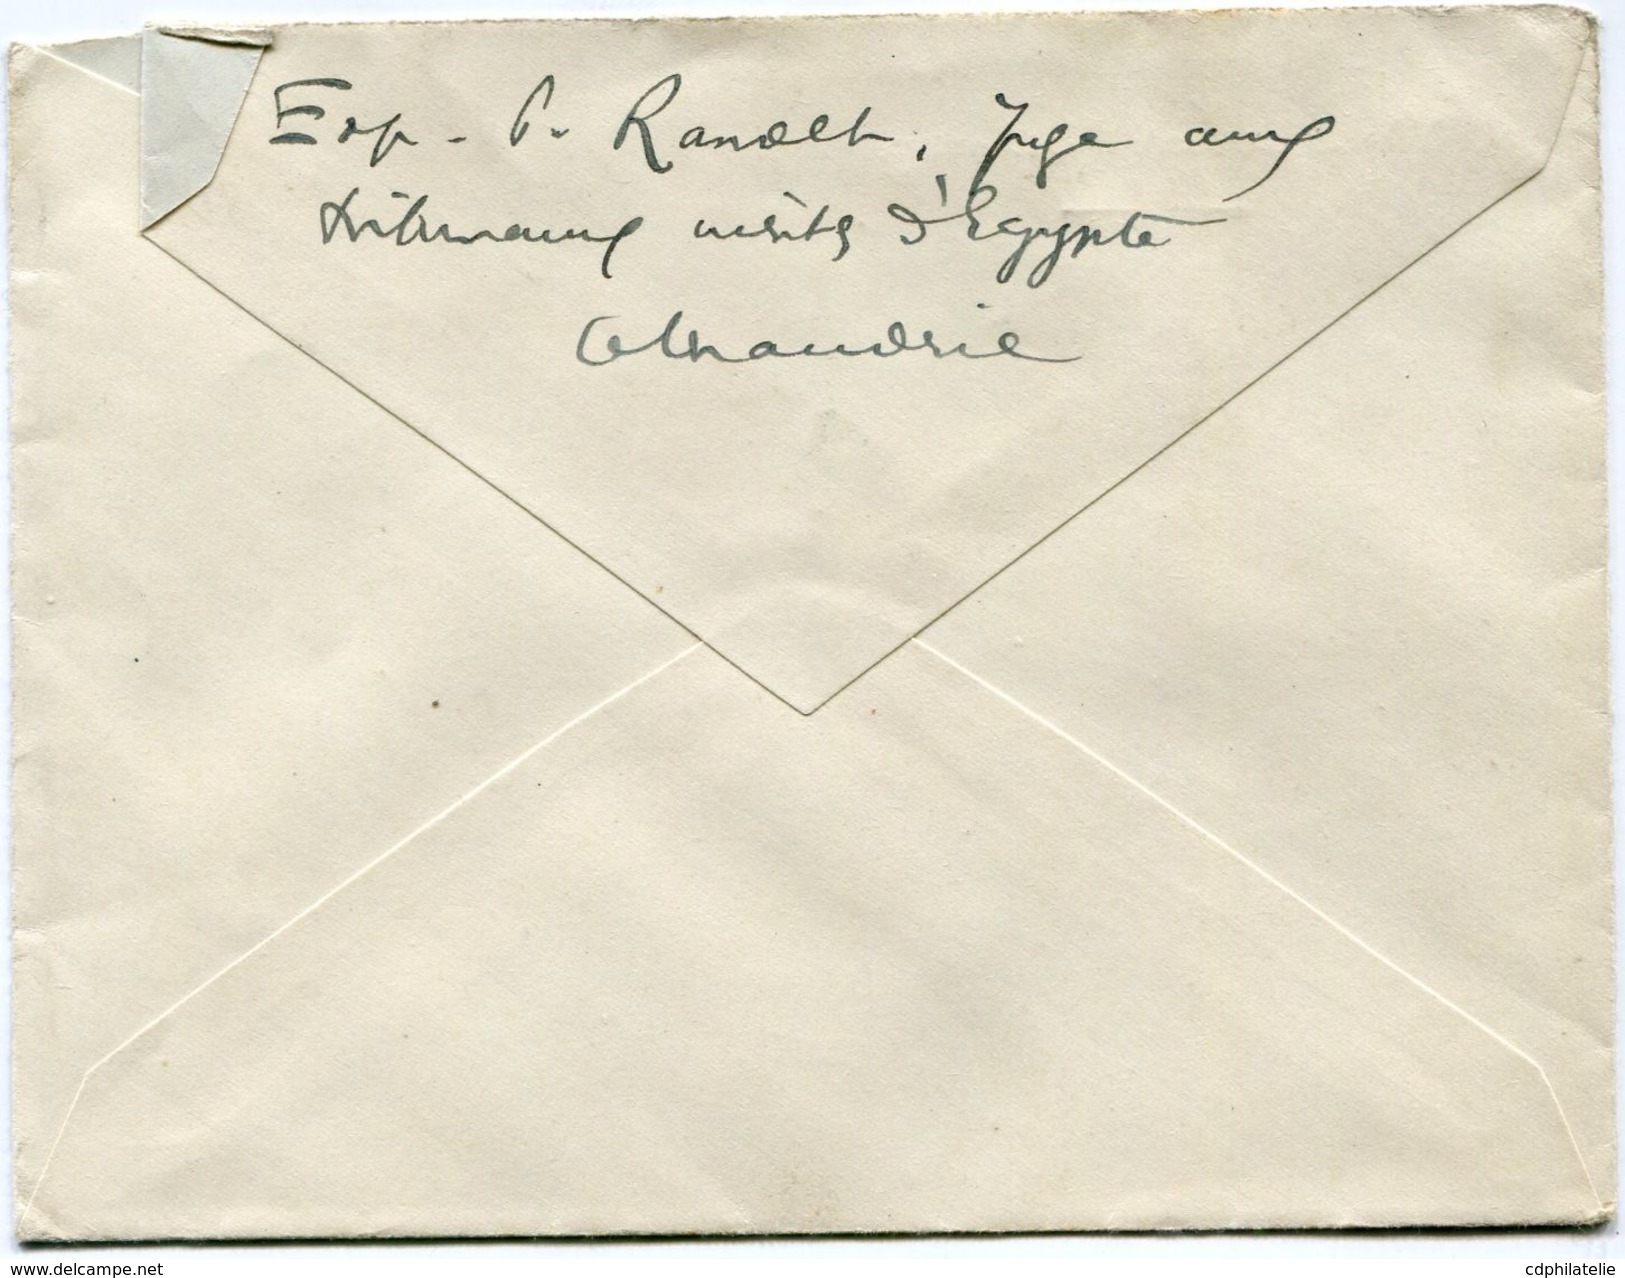 Exp - P. Ravoelt, Juge aux
tribunaux mixtes d'Egypte
Alexandrie
www.delcampe.net
cdphilatelie